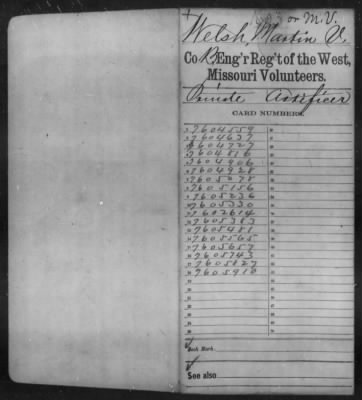 or M. V.
Welsh, Martin V.
Co B, Eng'r Reg't of the West,
Missouri Volunteers.
Private Artificer
CARD NUMBERS.
7604559
7604637
7604727
7604816
7604906
7604928
7605078
7605156
7605236
7605330
7642614
7605383
7605488
7605565
7605657
7605743
7605827
7605910
Book Mark:
See also